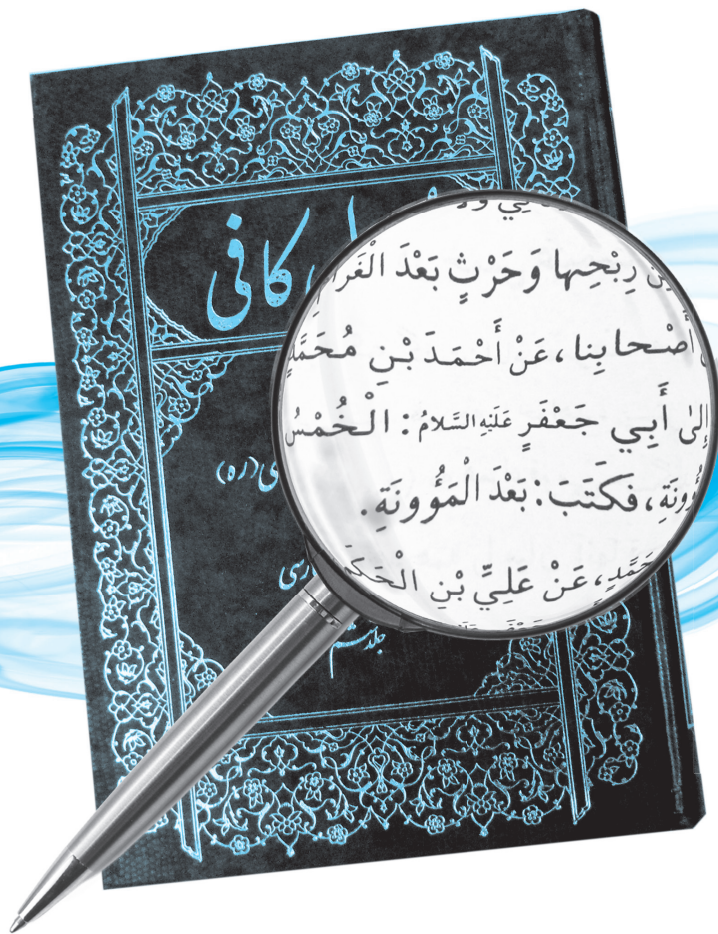 کافی
(ره)
جلد
رِبْحِها وَحَرْثٍ بَعْدَ الْغَرا
أَصْحابِنا، عَنْ أَحْمَدَ بْنِ مُحَمَّدٍ
إِلىٰ أَبِي جَعْفَرٍ عَلَيْهِ السَّلامُ: الْخُمْسُ
فَكَتَبَ: بَعْدَ الْمَؤُونَةِ.
عَنْ عَلِيِّ بْنِ الْحَكَمِ